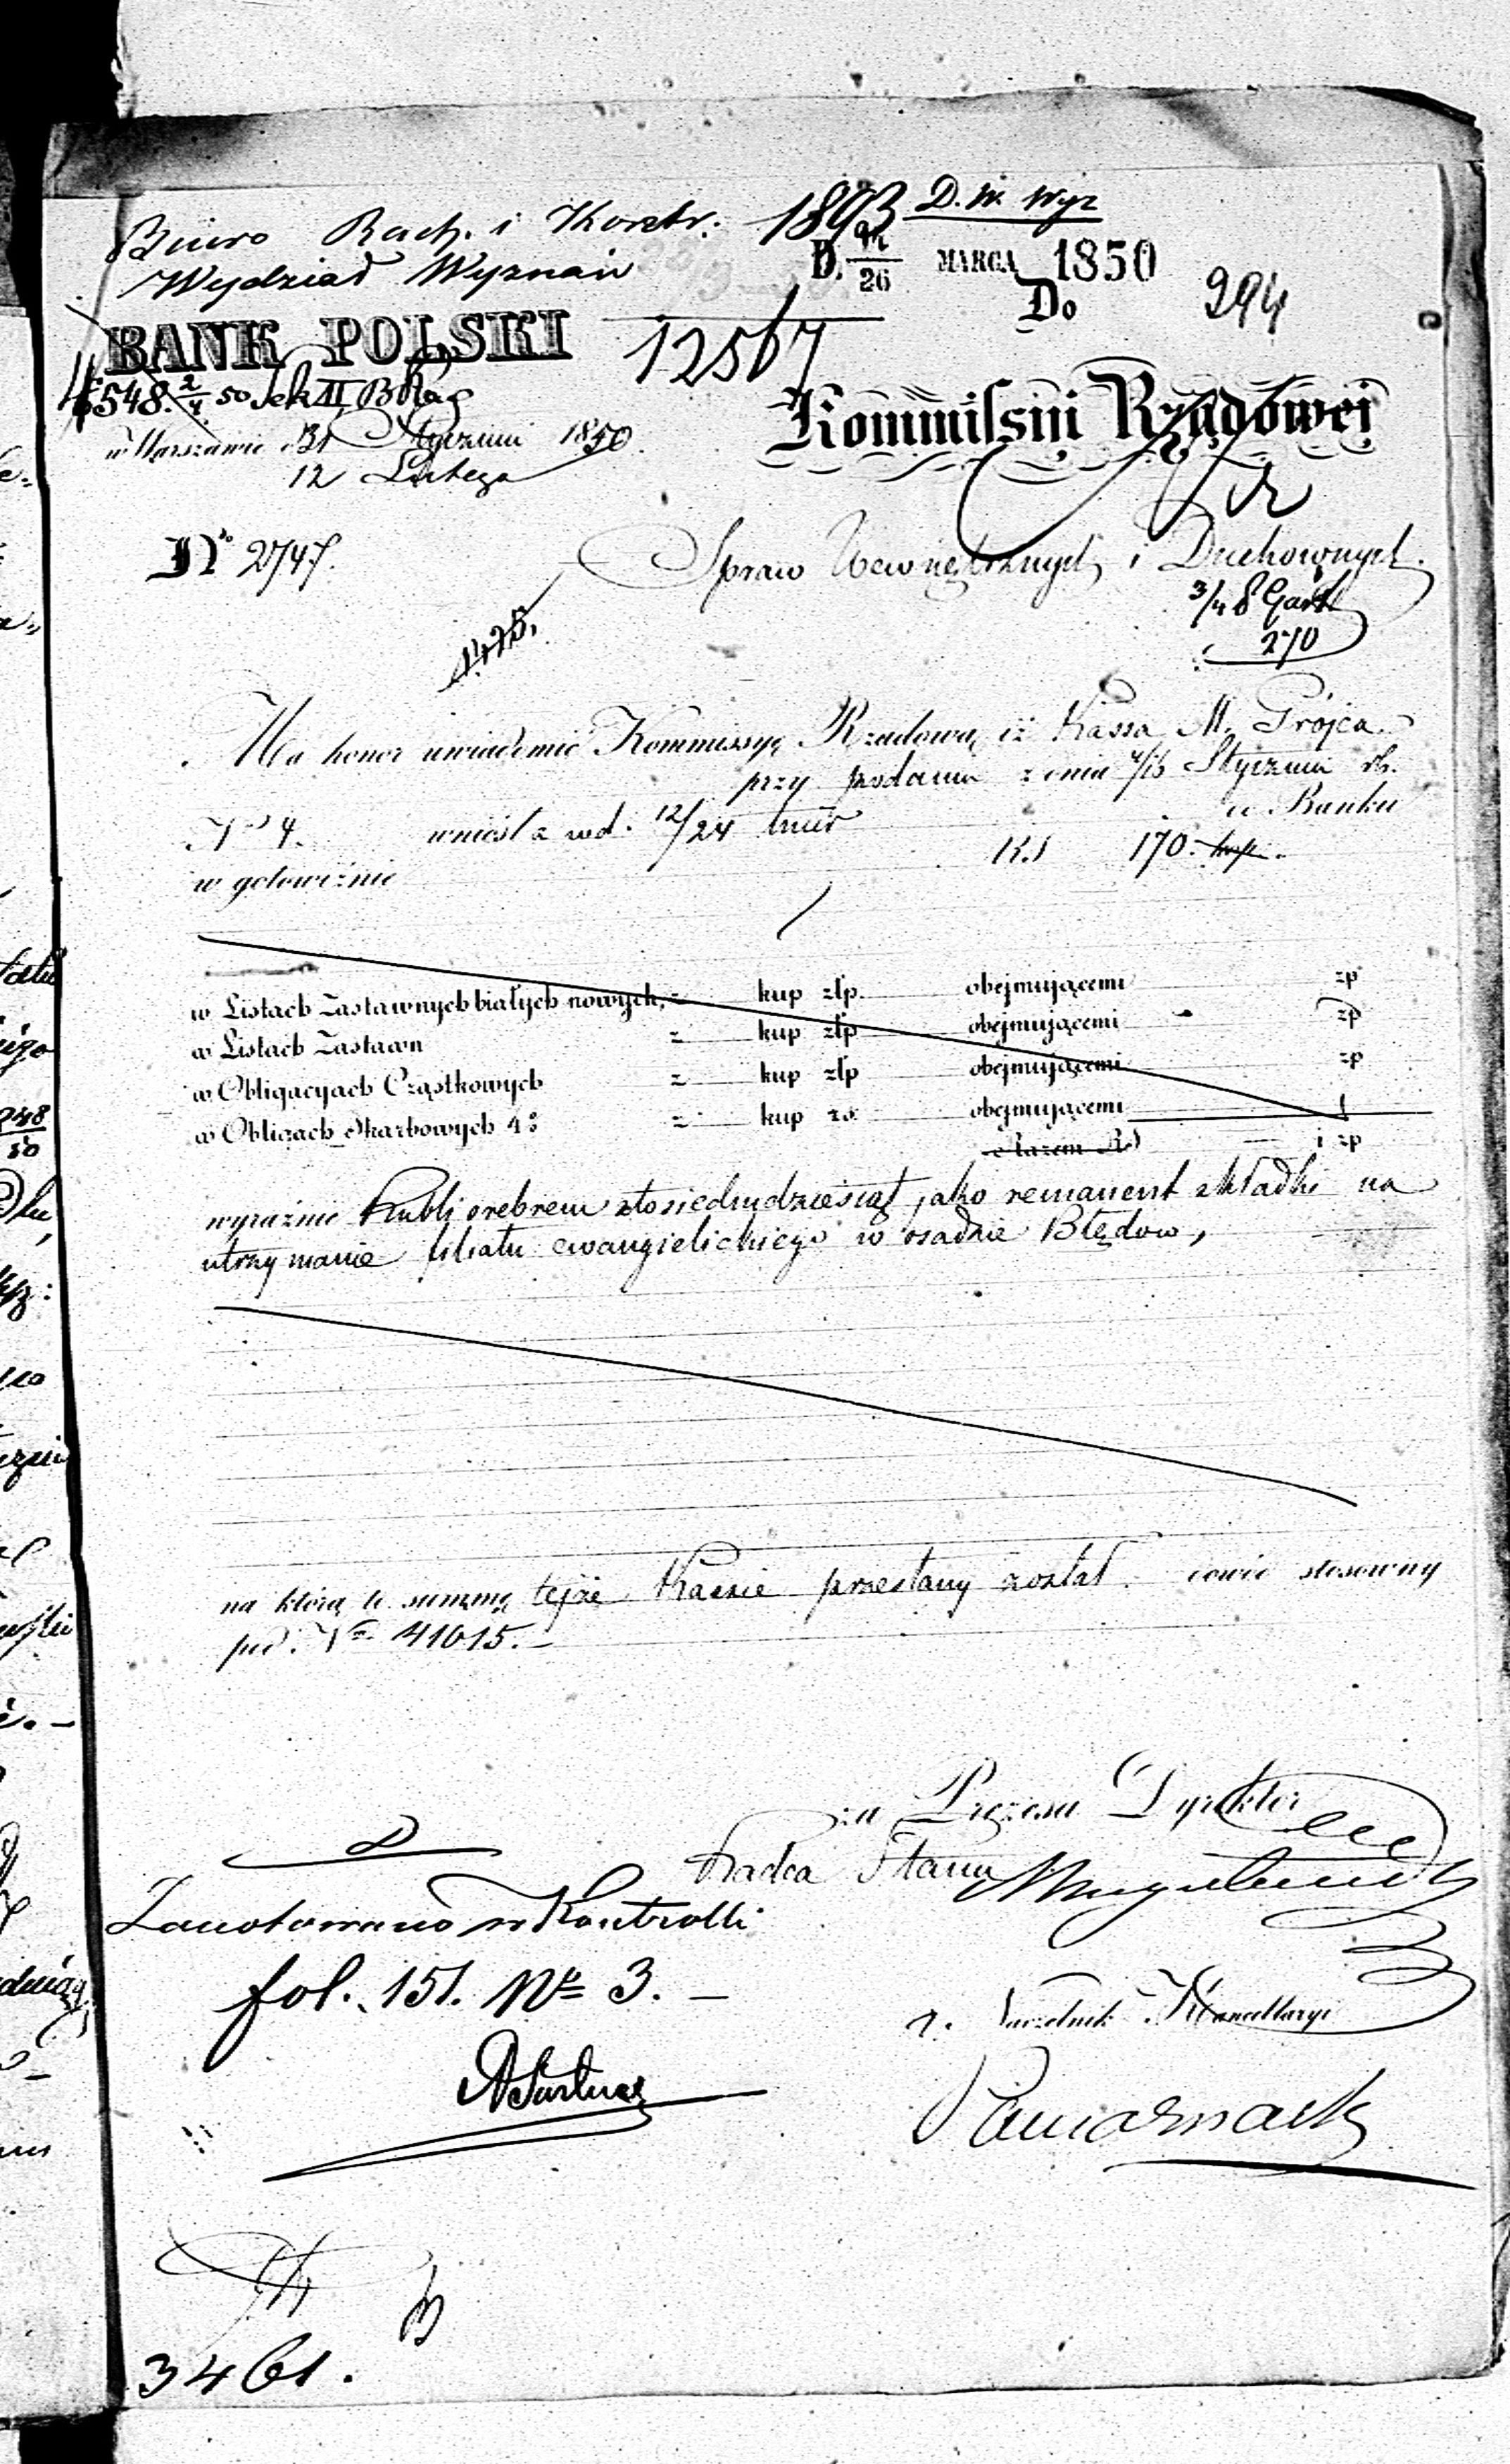 Biuro Rach. i Kontr. 1893 D. W. Wyz
Wydział Wyznań
D. 26 MARCA 1850
Do 294
BANK POLSKI 12567
4548. 2/4 50 Sek II B Rag
Kommissyi Rządowej
w Warszawie d 31 Stycznia 1850.
12 Lutego
No 2747.
Spraw Wewnętrznych i Duchownych.
3/4 8
270
1425.
Ma honor uwiadomić Kommissyę Rządową iż Kassa M. Grójca
przy podaniu z dnia 4/16 Stycznia rb.
No 4. wniosła wd. 12/24 tmr w Banku
w gotowiźnie RS 170. kop.
w Listach Zastawnych białych nowych, z kup złp. obejmującemi zp
w Listach Zastawn z kup złp obejmującemi zp
w Obligacyach Cząstkowych z kup złp obejmującemi zp
w Obligach Skarbowych 4% z kup zo obejmującemi
Razem RS i zp
wyraźnie Rubli srebrem stosiedmdziesiąt, jako remanent składki na
utrzymanie filiału ewangielickiego w osadzie Błędow,
na którą to summę tejże Kassie przesłany został kwit stosowny
pod. No 41015.
za Prezesa Dyrektor
Radca Stanu
Zanotowano w Kontrolli
fol. 151. No 3. –
z. Naczelnik Kancellaryi
3461.